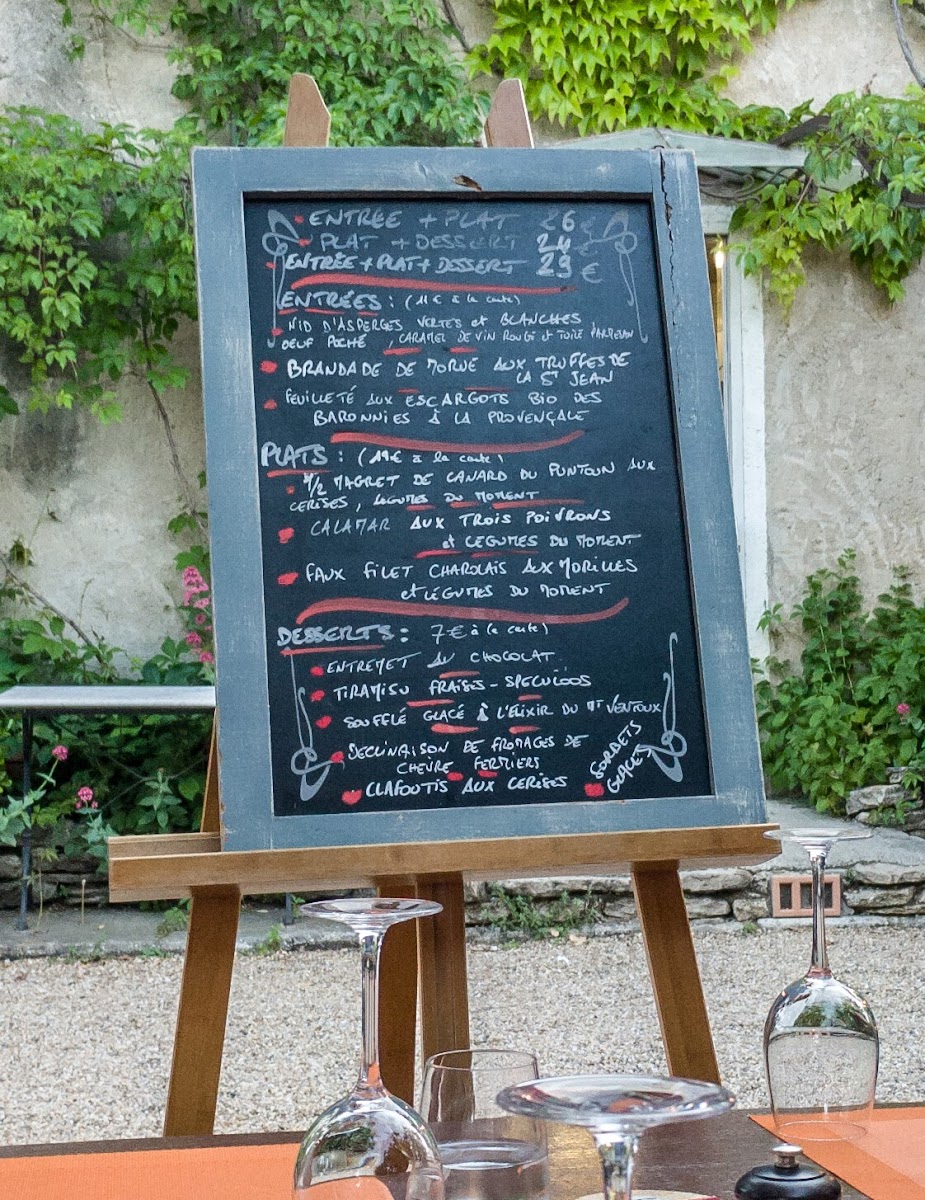 ENTRÉE + PLAT 26 €
PLAT + DESSERT 24 €
ENTRÉE + PLAT + DESSERT 29 €
ENTRÉES : (11€ à la carte)
NID D'ASPERGES VERTES et BLANCHES
OEUF POCHÉ , CARAMEL DE VIN ROUGE et TUILE PARMESAN
BRANDADE DE MORUE AUX TRUFFES DE
LA ST JEAN
FEUILLETÉ AUX ESCARGOTS BIO DES
BARONNIES À LA PROVENÇALE
PLATS : (19€ à la carte)
1/2 MAGRET DE CANARD DU AUX
CERISES , LEGUMES DU MOMENT
CALAMAR AUX TROIS POIVRONS
et LEGUMES DU MOMENT
FAUX FILET CHAROLAIS AUX MORILLES
et LÉGUMES DU MOMENT
DESSERTS : 7€ à la carte)
ENTREMET AU CHOCOLAT
TIRAMISU FRAISES - SPECULOOS
SOUFFLÉ GLACÉ À L'ELIXIR DU MT VENTOUX
DECLINAISON DE FROMAGES DE
CHEVRE FERMIERS
CLAFOUTIS AUX CERISES
SORBETS
GLACES